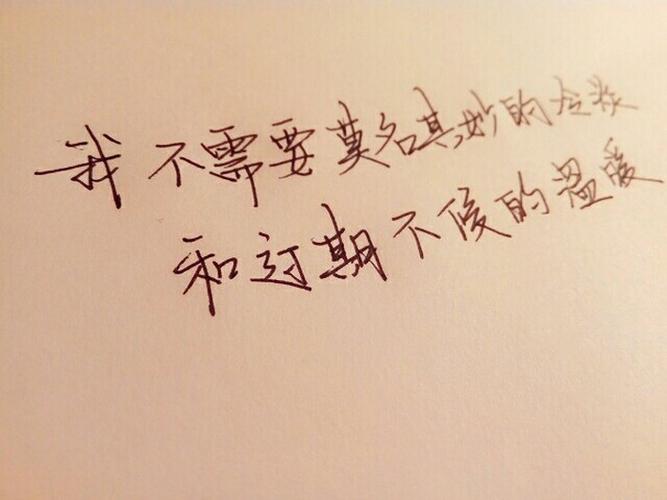 我不需要莫名其妙的冷淡
和过期不候的温暖